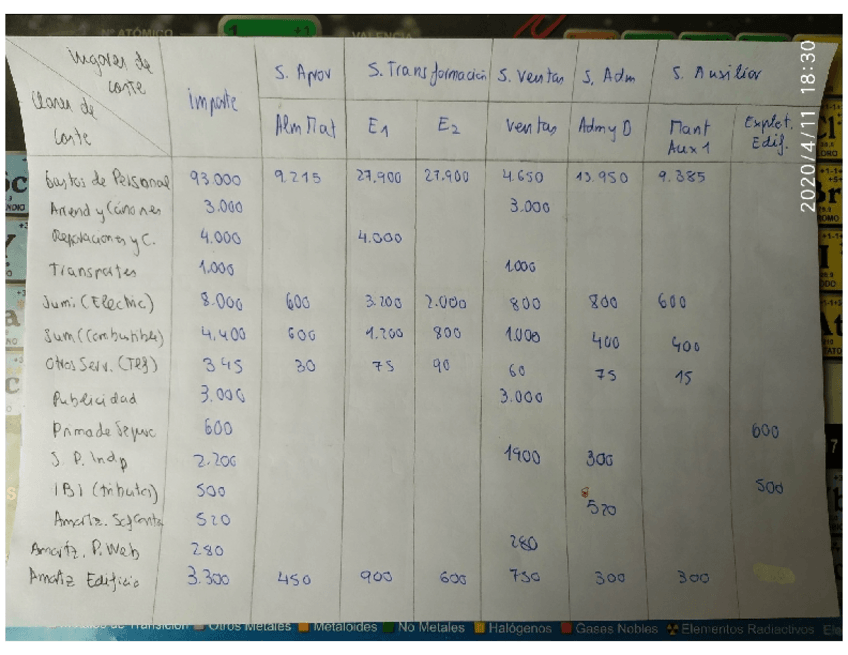 Nº ATÓMICO
1
VALENCIA
lugares de coste
Clases de coste
importe
S. Aprov
S. Transformación
S. Ventas
S. Adm
S. Auxiliar
Alm Mat
E1
E2
Ventas
Adm y D
Mant Aux 1
Explot. Edif.
Gastos de Personal 93.000 9.215 27.900 27.900 4.650 13.950 9.385
Arrend y Cánones 3.000 3.000
Reparaciones y C. 4.000 4.000
Transportes 1.000 1.000
Sumi (Electric) 8.000 600 3.200 2.000 800 800 600
Sum (Combustibles) 4.400 600 1.200 800 1.000 400 400
Otros Serv. (Telf) 345 30 75 90 60 75 15
Publicidad 3.000 3.000
Prima de Seguro 600 600
S. P. Indp 2.200 1900 300
IBI (tributos) 500 500
Amortz. 520 520
Amortz. P. Web 280 280
Amortiz Edificio 3.300 450 900 600 750 300 300
2020/4/11 18:30
Otros Metales
Metaloides
No Metales
Halógenos
Gases Nobles
Elementos Radiactivos